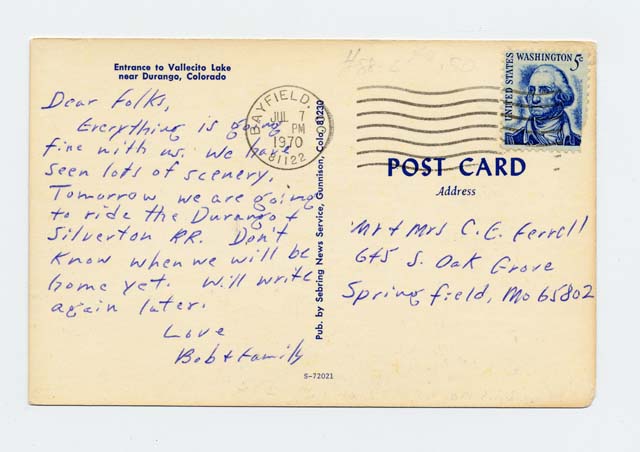 Entrance to Vallecito Lake
near Durango, Colorado
Dear Folks,
Everything is going
fine with us. We have
seen lots of scenery.
Tomorrow we are going
to ride the Durango &
Silverton RR. Don't
Know when we will be
home yet. Will write
again later.
Love
Bob & Family
BAYFIELD,
JUL 7
PM
1970
81122
Pub. by Sebring News Service, Gunnison, Colo. 81230
S-72021
UNITED STATES
WASHINGTON 5c
POST CARD
Address
Mr & Mrs C. E. Ferrell
645 S. Oak Grove
Springfield, Mo 65802